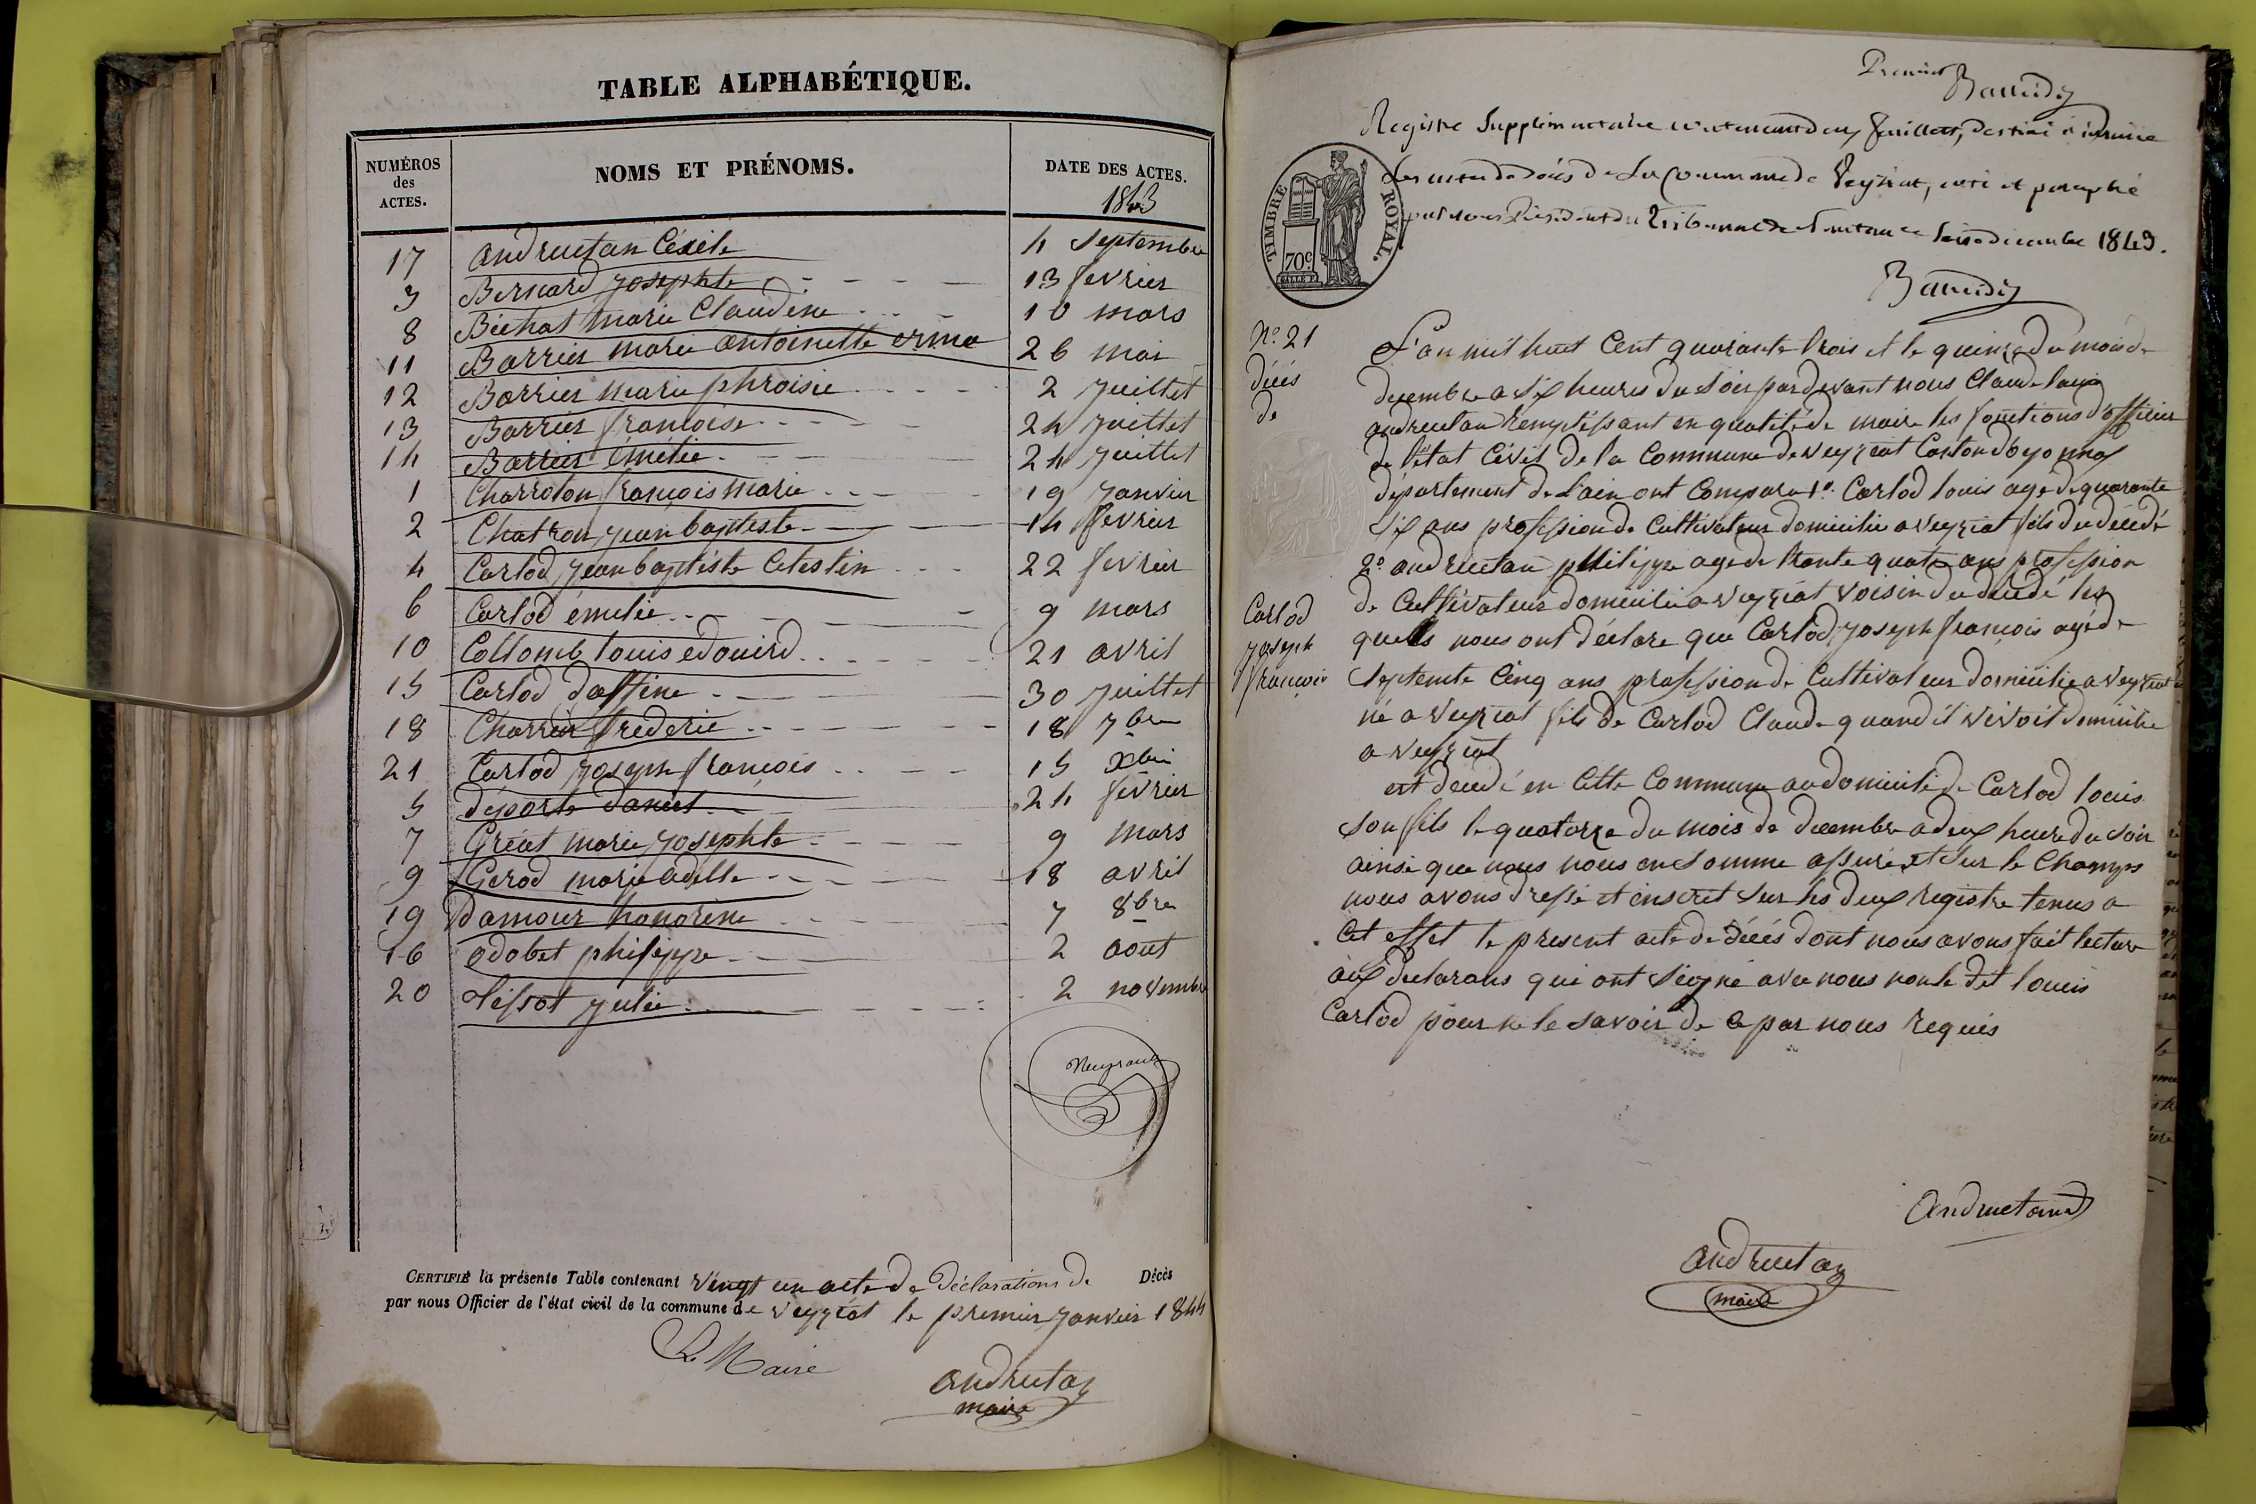 TABLE ALPHABÉTIQUE.
NUMÉROS des ACTES. NOMS ET PRÉNOMS. DATE DES ACTES.
1843
17 andruetan Cécile 4 Septembre
3 Bernard josephte 13 fevrier
8 Béchat marie Claudine 10 mars
11 Barrier marie antoinette erina 26 mai
12 Barrier marie phroisie 2 juillet
13 Barrier francoise 24 juillet
14 Barrier émélie 24 juillet
1 Charroton françois marie 19 janvier
2 Chatron jean baptiste 14 fevrier
4 Carlod jean baptiste Celestin 22 fevrier
6 Carlod émelie 9 mars
10 Collomb louis edouird 21 avril
15 Carlod dalfine 30 juillet
18 Charrier frederic 18 7bre
21 Carlod joseph françois 15 Xbre
5 déporte daniel 24 fevrier
7 Gréat marie josephte 9 mars
9 Gerod marie adelle 18 avril
19 damour honorine 7 8bre
16 odobet philippe 2 aout
20 tissot julie 2 novembre
CERTIFIÉ la présente Table contenant vingt un acte de déclarations de Décès
par nous Officier de l'état civil de la commune de veyziat le premier janvier 1844
Le Maire
andruetan
maire
Premier
Registre Supplémentaire contenant deux feuillets, destiné à inscrire
les actes de décès de la Commune de Veyziat, coté et paraphé
par nous Président du Tribunal de Nantua ce seize decembre 1843.
TIMBRE ROYAL.
70c
No 21
décés
de
Carlod
joseph
françois
L'an mil huit Cent quarante trois et le quinze du mois de
decembre a six heures du soir par devant nous Claude louis
andruetan remplissant en qualité de maire les fonctions d'officier
de l'état Civil de la Commune de veyziat Canton d'oyonnax
département de l'ain ont Comparu 1o. Carlod louis age de quarante
six ans profession de Cultivateur domicilie a veyziat fils du décédé
2o. andruetan philippe age de trante quatre ans profession
de Cultivateur domicilie a veyziat voisin du decedé les
quels nous ont déclare que Carlod joseph françois agé de
septente Cinq ans profession de Cultivateur domicilie a veyziat
né a veyziat fils de Carlod Claude quand il vivoit domicilie
a veyziat
est decedé en Cette Commune au domicile de Carlod louis
son fils le quatorze du mois de decembre a deux heure du soir
ainsi que nous nous en somme assuré et sur le Champs
nous avons dressé et inscrit sur les deux registre tenus a
Cet effet le present acte de décés dont nous avons fait lecture
aux declarans qui ont signé avec nous non le dit louis
Carlod pour ne le savoir de ce par nous requis
andruetan
andruetan
maire